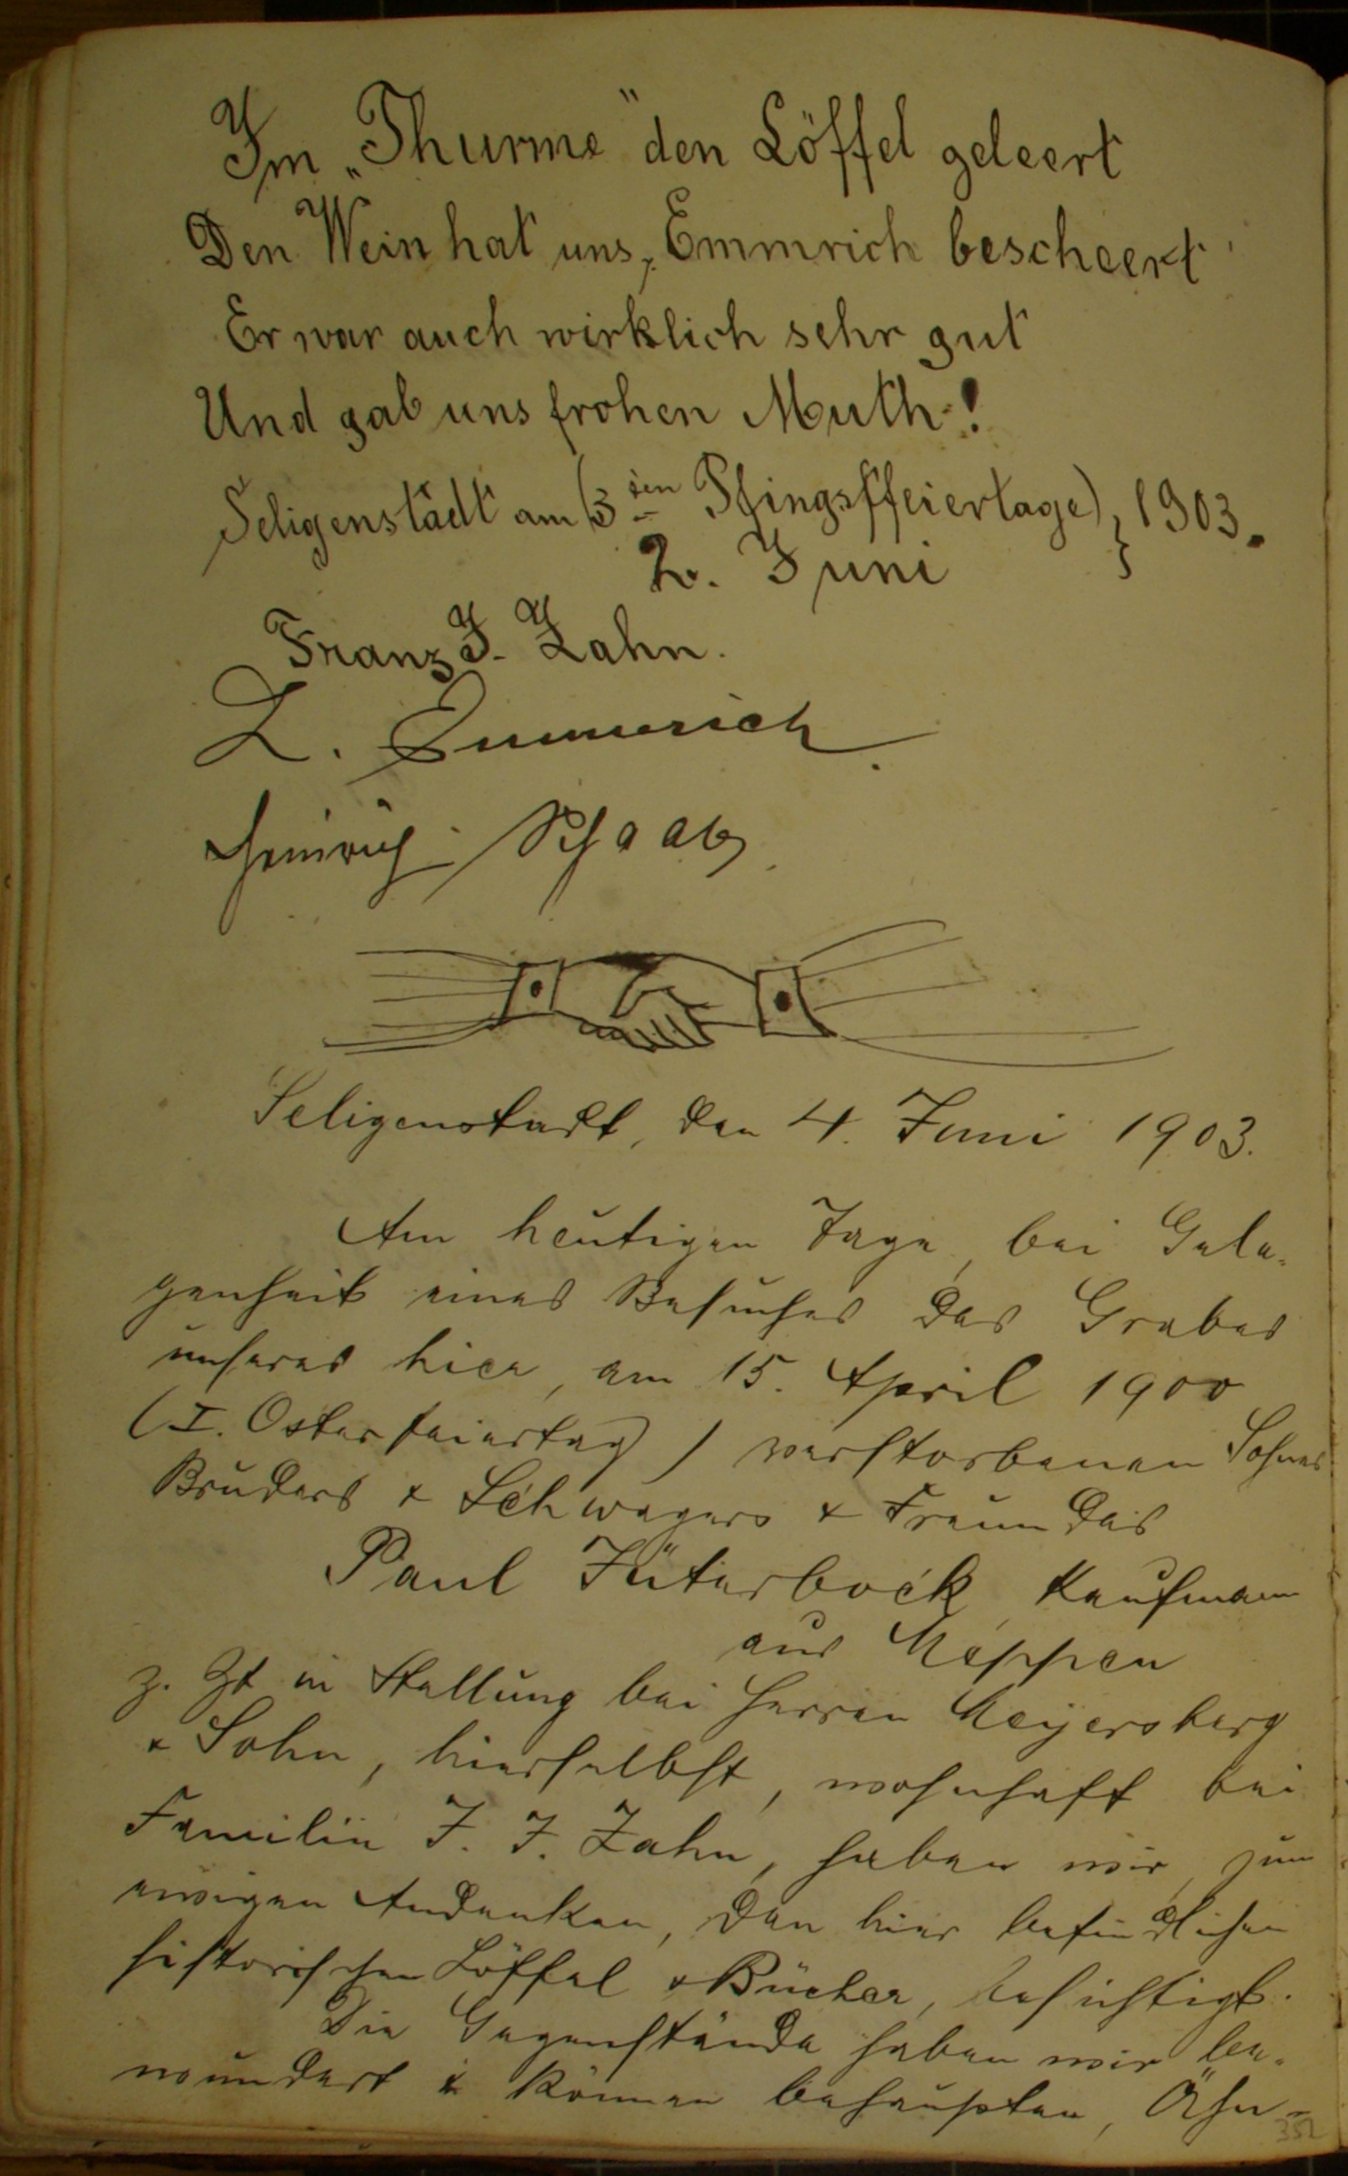 Im „Thurme" den Löffel geleert
Den Wein hat uns, Emmrich bescheert
Er war auch wirklich sehr gut
Und gab uns frohen Muth!
Seligenstadt am (3ten Pfingstfeiertage), 1903.
2. Juni
Franz J. Zahn.
L. Emmerich.
Heinrich Schaab.
Seligenstadt, den 4. Juni 1903.
Am heutigen Tage, bei Gele-
genheit eines Besuches des Grabes
unseres hier, am 15. April 1900
(I. Osterfeiertag) verstorbenen Sohnes
Bruders & Schwagers & Freundes
Paul Jüterbock, Kaufmann
aus Meppen
z. Zt in Stellung bei Herren Meyersberg
& Sohn, hierselbst, wohnhaft bei
Familie F. J. Zahn, haben wir, zum
ewigen Andenken, den hier befindlichen
historischen Löffel & Bücher, besichtigt.
Die Gegenstände haben wir be-
wundert & können behaupten, Ähn-
352